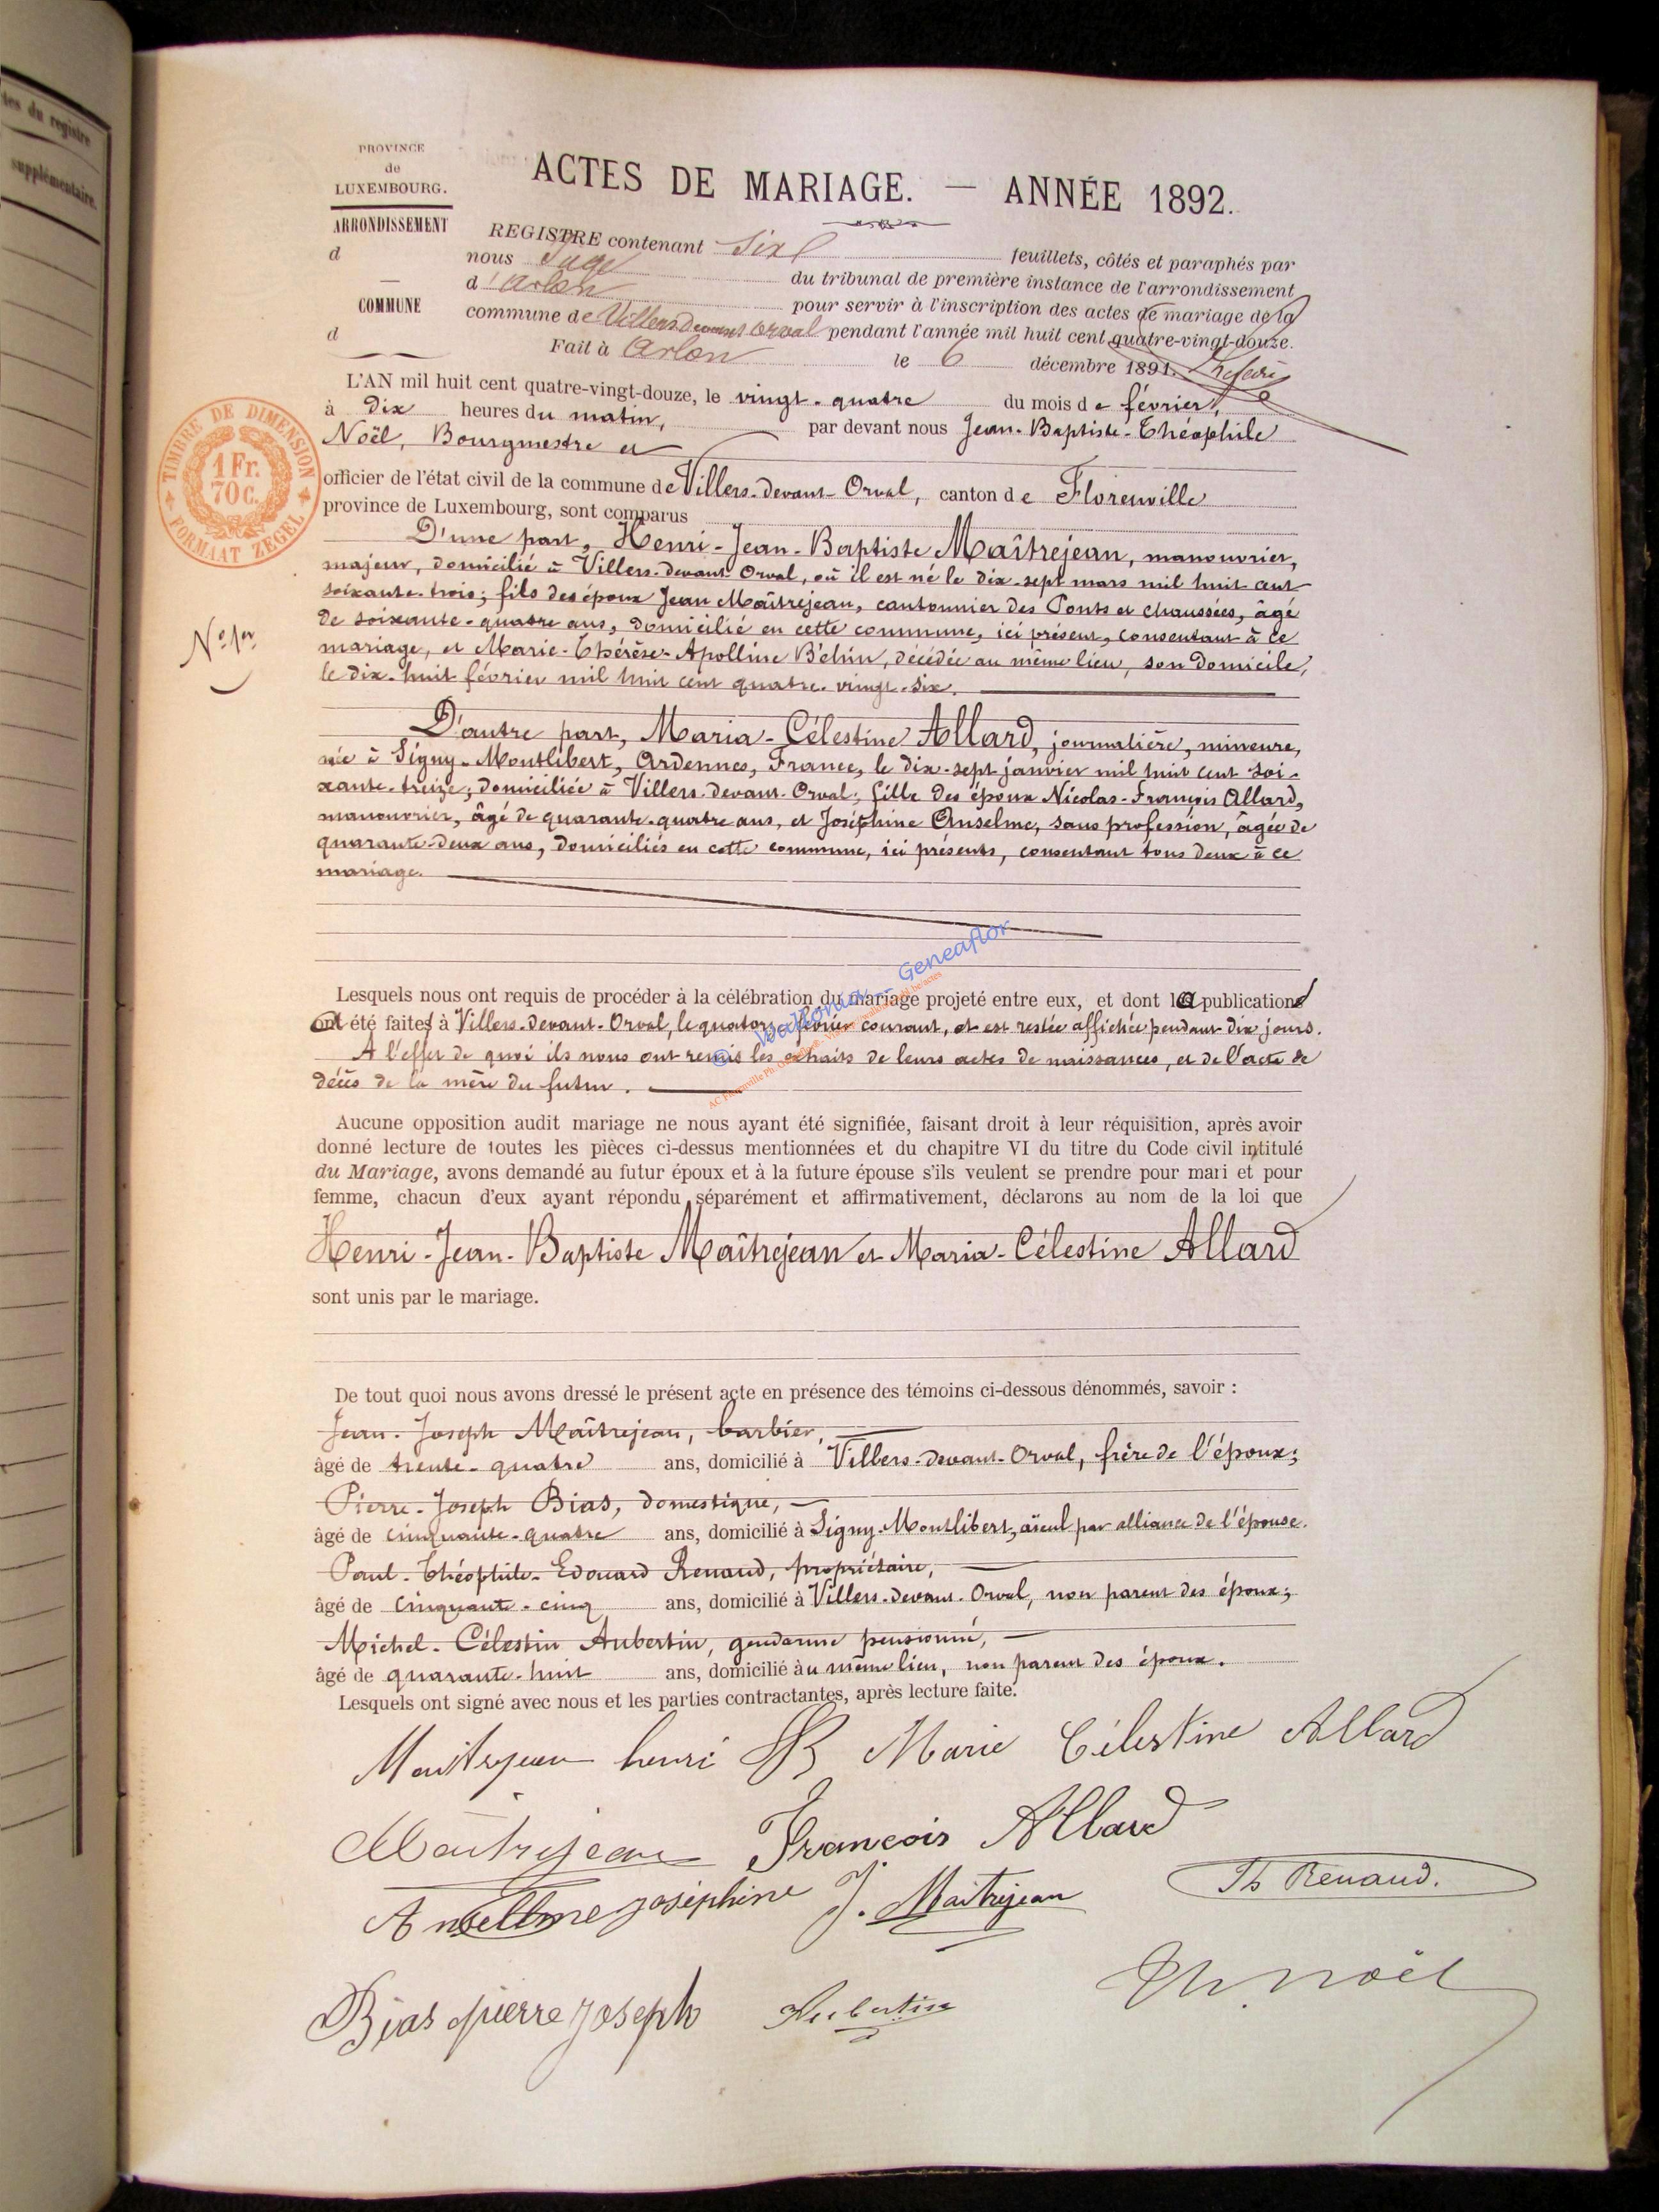 tes du registre
supplémentaire.
PROVINCE
de
LUXEMBOURG.
ARRONDISSEMENT
d
COMMUNE
d
ACTES DE MARIAGE. — ANNÉE 1892.
REGISTRE contenant six feuillets, côtés et paraphés par
nous Juge du tribunal de première instance de l'arrondissement
d'Arlon pour servir à l'inscription des actes de mariage de la
commune de Villers devant Orval pendant l'année mil huit cent quatre-vingt-douze.
Fait à Arlon le 6 décembre 1891.
TIMBRE DE DIMENSION
1 Fr.
70 c.
FORMAAT ZEGEL
L'AN mil huit cent quatre-vingt-douze, le vingt-quatre du mois de février,
à dix heures du matin, par devant nous Jean-Baptiste-Théophile
Noël, Bourgmestre et
officier de l'état civil de la commune de Villers-devant-Orval, canton de Florenville
province de Luxembourg, sont comparus
D'une part, Henri-Jean-Baptiste Maîtrejean, manouvrier,
majeur, domicilié à Villers-devant-Orval, où il est né le dix-sept mars mil huit cent
soixante-trois; fils des époux Jean Maîtrejean, cantonnier des Ponts et chaussées, âgé
N° 1er
de soixante-quatre ans, domicilié en cette commune, ici présent, consentant à ce
mariage, et Marie-Thérèse-Apolline Béhin, décédée au même lieu, son domicile,
le dix-huit février mil huit cent quatre-vingt-six.
D'autre part, Maria-Célestine Allard, journalière, mineure,
née à Signy-Montlibert, Ardennes, France, le dix-sept janvier mil huit cent soi-
xante-treize; domiciliée à Villers-devant-Orval; fille des époux Nicolas-François Allard,
manouvrier, âgé de quarante-quatre ans, et Joséphine Anselme, sans profession, âgée de
quarante-deux ans, domiciliés en cette commune, ici présents, consentant tous deux à ce
mariage.
© Wallonia - Geneaflor
Lesquels nous ont requis de procéder à la célébration du mariage projeté entre eux, et dont la publication
ont été faite à Villers-devant-Orval, le quatorze février courant, et est restée affichée pendant dix jours.
A l'effet de quoi ils nous ont remis les extraits de leurs actes de naissances, et de l'acte de
décès de la mère du futur.
Aucune opposition audit mariage ne nous ayant été signifiée, faisant droit à leur réquisition, après avoir
donné lecture de toutes les pièces ci-dessus mentionnées et du chapitre VI du titre du Code civil intitulé
du Mariage, avons demandé au futur époux et à la future épouse s'ils veulent se prendre pour mari et pour
femme, chacun d'eux ayant répondu séparément et affirmativement, déclarons au nom de la loi que
Henri-Jean-Baptiste Maîtrejean et Maria-Célestine Allard
sont unis par le mariage.
De tout quoi nous avons dressé le présent acte en présence des témoins ci-dessous dénommés, savoir :
Jean-Joseph Maîtrejean, barbier,
âgé de trente-quatre ans, domicilié à Villers-devant-Orval, frère de l'époux;
Pierre-Joseph Bias, domestique,
âgé de cinquante-quatre ans, domicilié à Signy-Montlibert, aïeul par alliance de l'épouse.
Paul-Théophile-Edouard Renaud, propriétaire,
âgé de cinquante-cinq ans, domicilié à Villers-devant-Orval, non parent des époux;
Michel-Célestin Aubertin, gendarme pensionné,
âgé de quarante-huit ans, domicilié au même lieu, non parent des époux.
Lesquels ont signé avec nous et les parties contractantes, après lecture faite.
Maitrejean henri Marie Célestine Allard
Maitrejean François Allard
Anselme joséphine J. Maitrejean Th Renaud.
Bias pierre joseph Aubertin Th. Noël